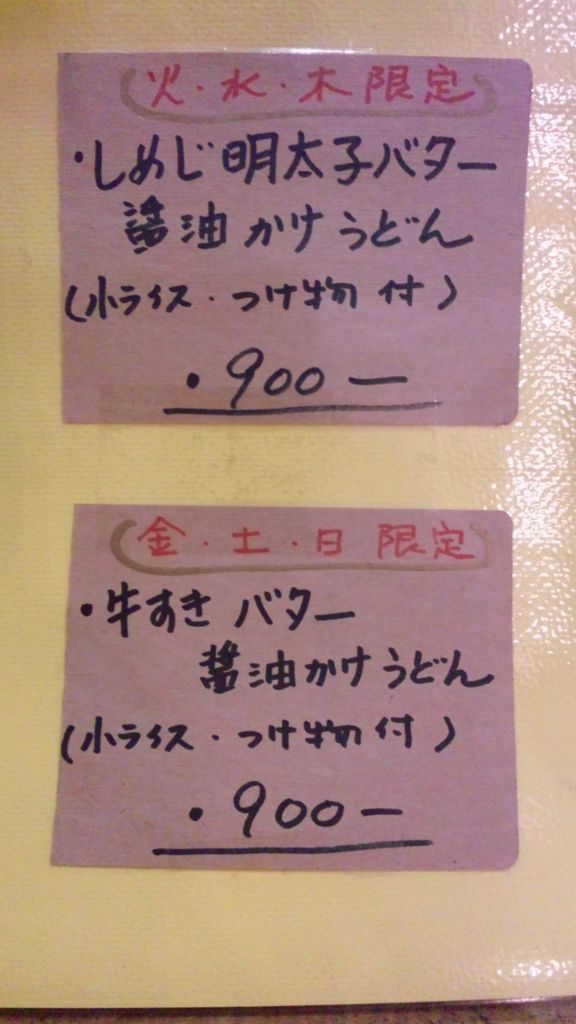 火・水・木 限定
・しめじ 明太子バター
醤油 かけ うどん
(小ライス・つけ物 付)
・900ー
金・土・日 限定
・牛すき バター
醤油かけ うどん
(小ライス・つけ物 付)
・900ー